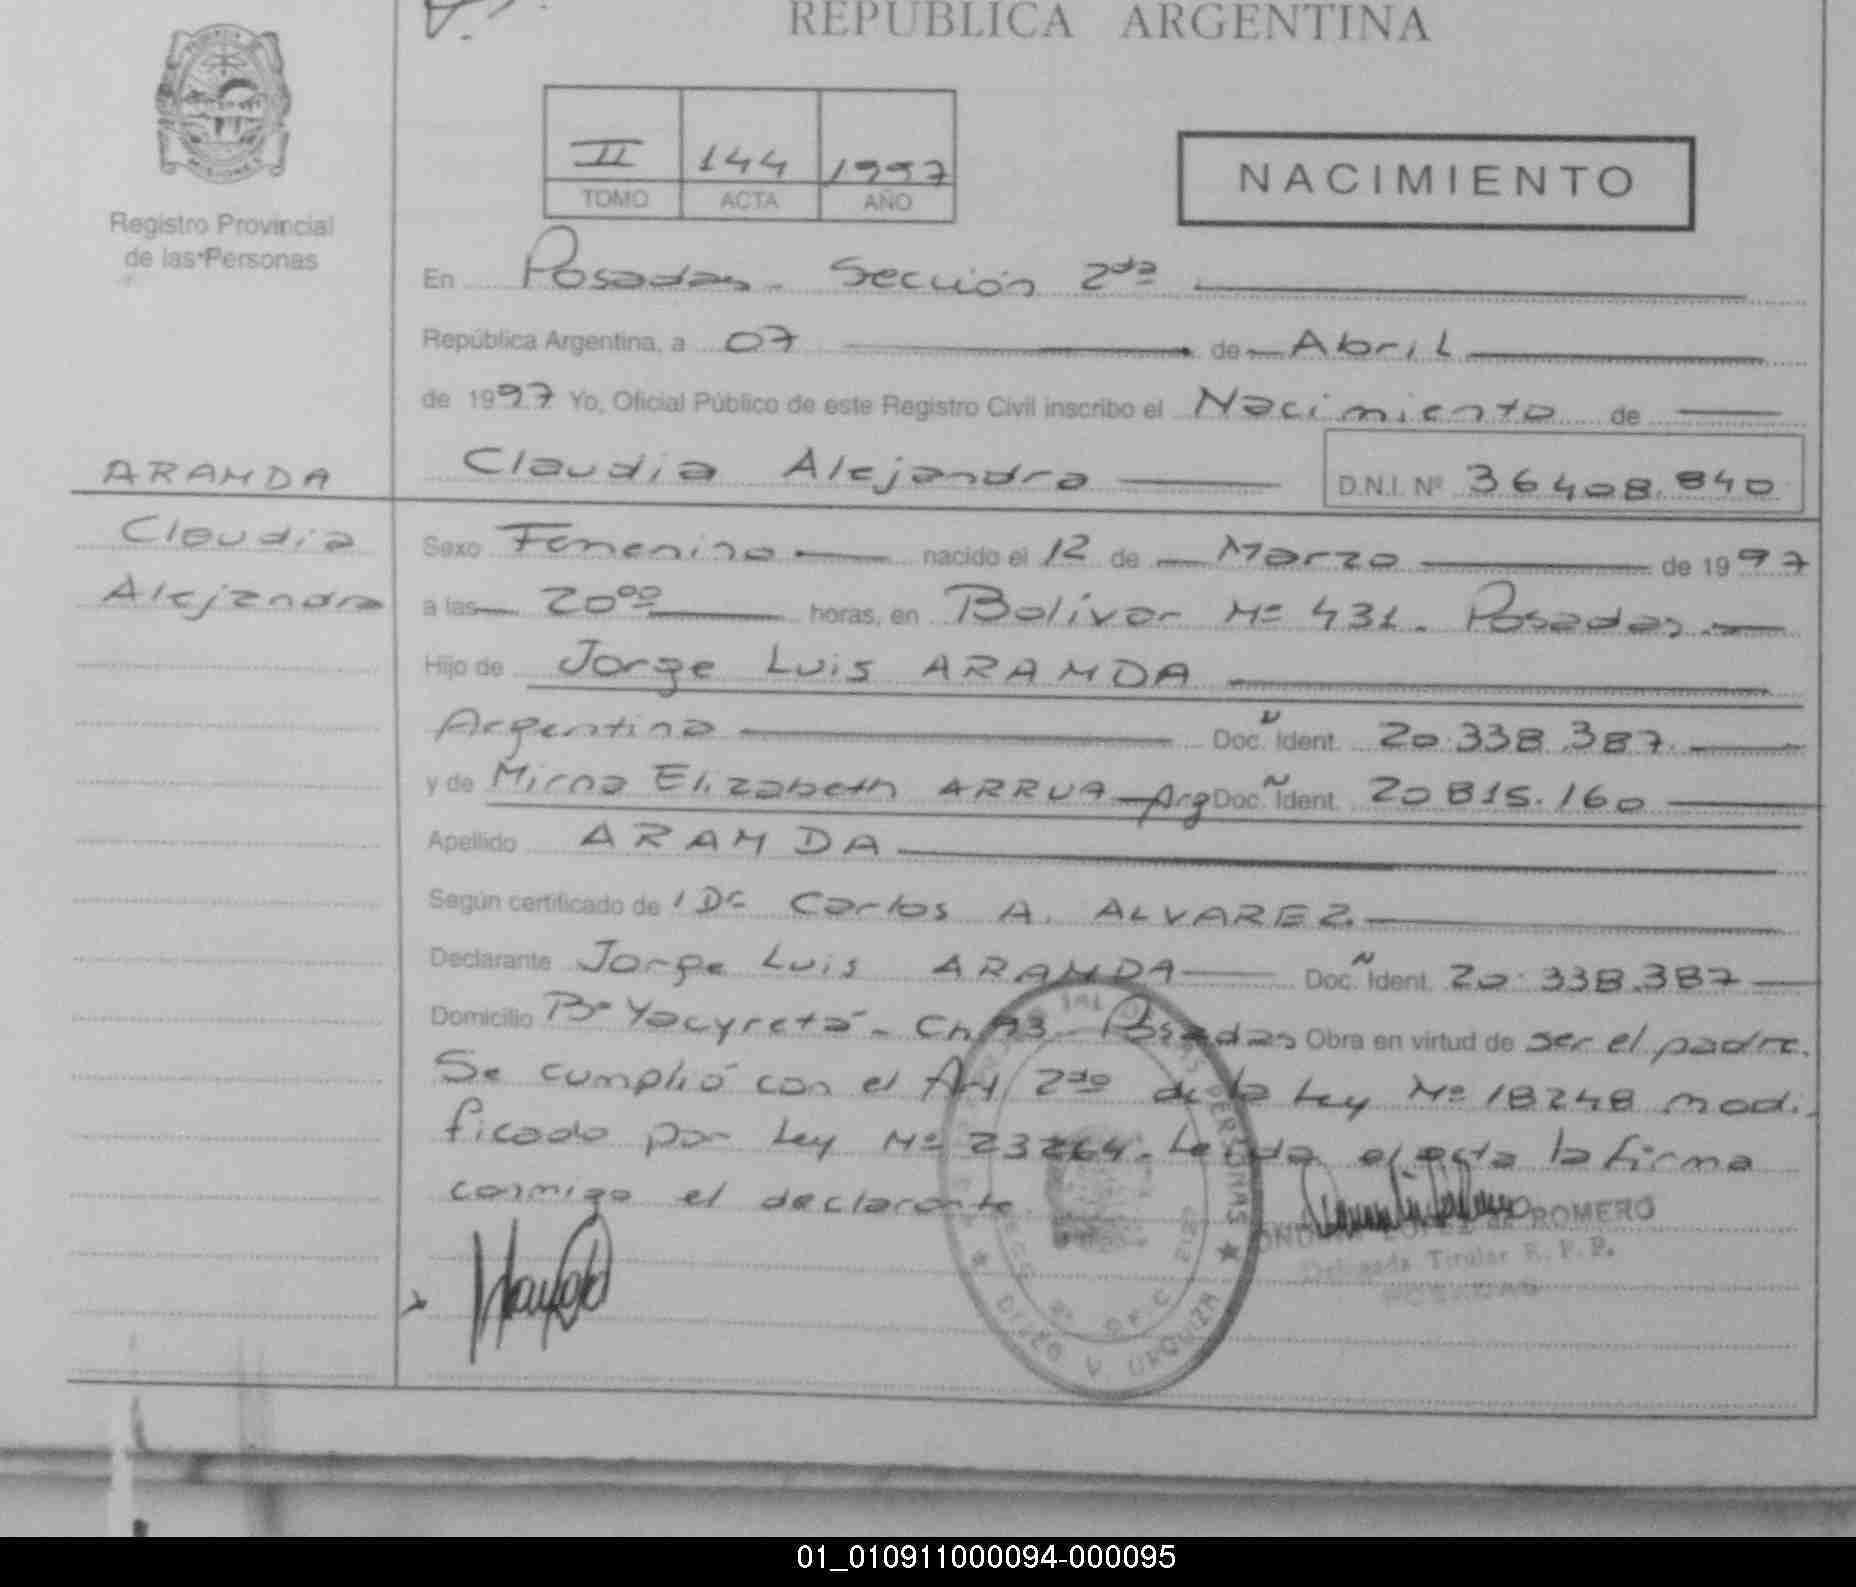 REPUBLICA ARGENTINA
II 144 1997
TOMO ACTA AÑO
NACIMIENTO
Registro Provincial
de las Personas
En Posadas - Sección 2da
República Argentina, a 07 de Abril
de 1997 Yo, Oficial Público de este Registro Civil inscribo el Nacimiento de
ARANDA
Claudia Alejandra D.N.I. Nº 36408.840
Claudia
Alejandra
Sexo Femenino nacido el 12 de Marzo de 1997
a las 20⁰⁰ horas, en Bolívar Nº 431. Posadas.
Hijo de Jorge Luis ARANDA
Argentina Doc. Ident. 20.338.387.
y de Mirna Elizabeth ARRUA Arg Doc. Ident. 20 815.160
Apellido ARANDA
Según certificado de Dr Carlos A. ALVAREZ.
Declarante Jorge Luis ARANDA Doc. Ident. 20.338.387
Domicilio Bº Yacyretá - Posadas Obra en virtud de ser el padre.
Se cumplió con el Art 2do de la Ley Nº 18248 modi-
ficado por Ley Nº 23264. Leída el acta la firma
conmigo el declarante.
LOPEZ de ROMERO
Delegada Titular R. P. P.
POSADAS
PERSONAS
URQUIZA
01_010911000094-000095